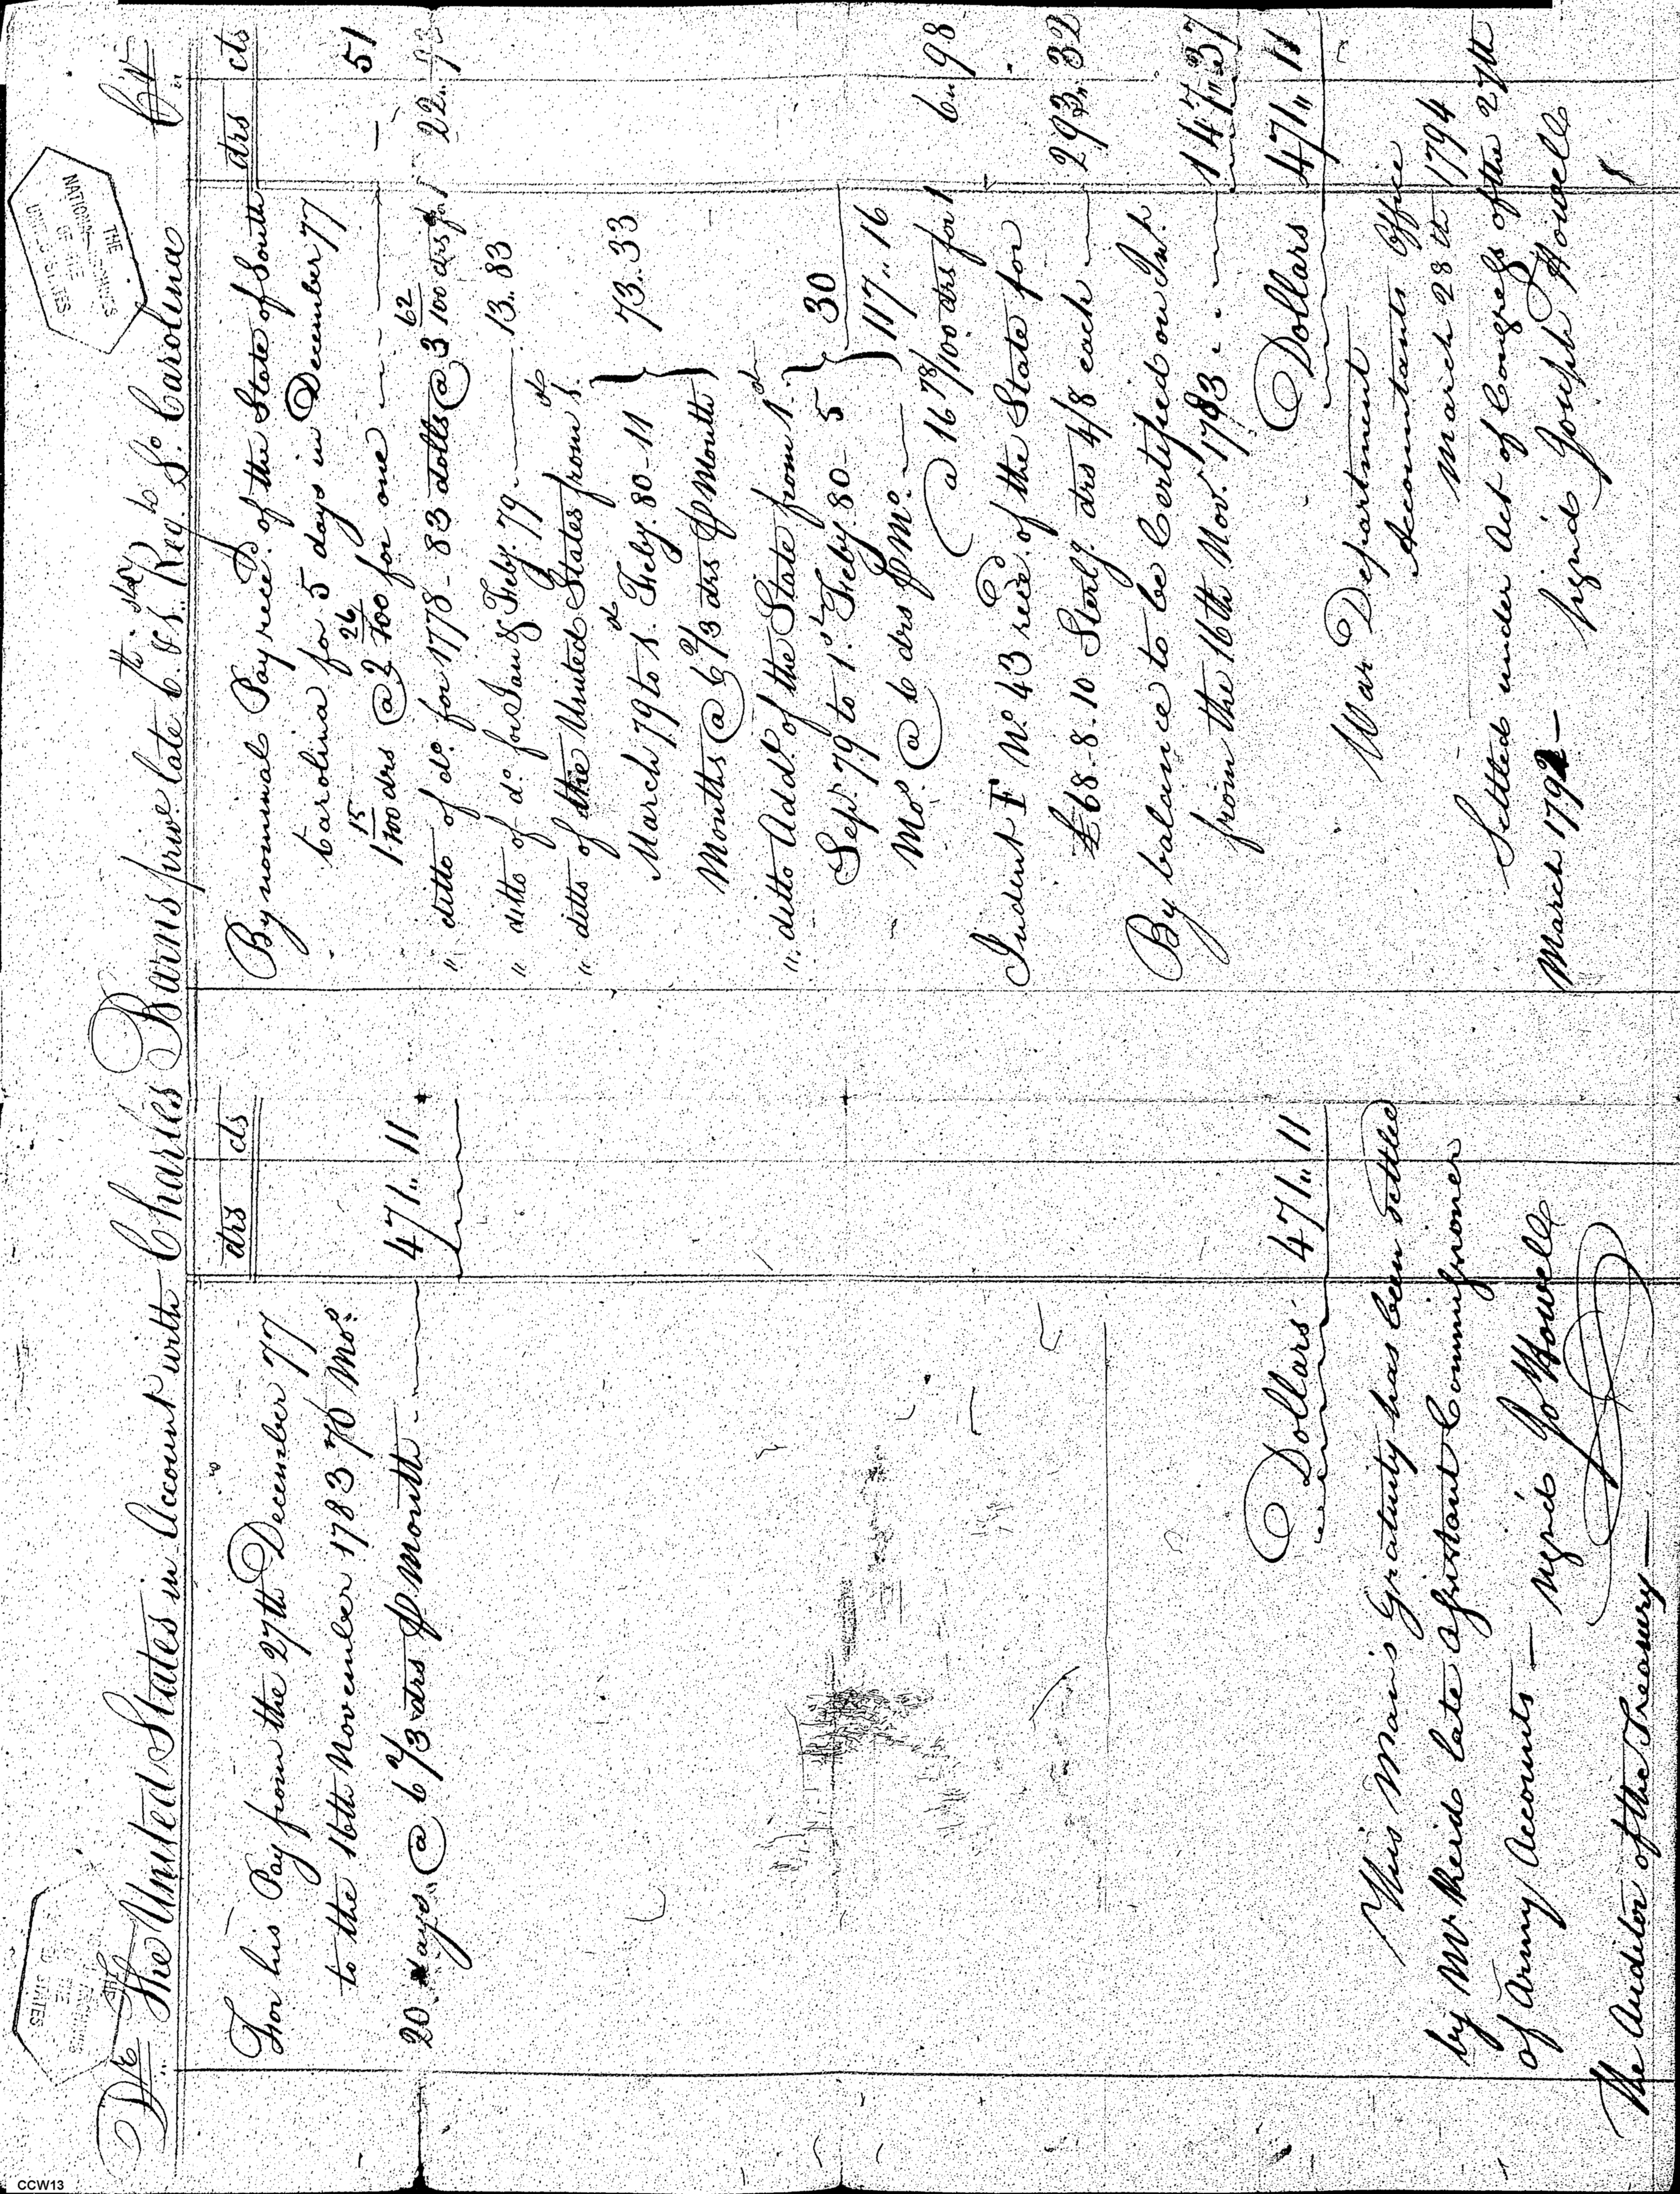 THE NATIONAL ARCHIVES OF THE UNITED STATES
THE NATIONAL ARCHIVES OF THE UNITED STATES
Dr The United States in Account with Charles Barns priv late 6th So Reg So Carolina Cr
drs cts
For his Pay from the 27th December 77
to the 16th November 1783 70 Mos
20 days @ 6 2/3 drs P Month 471.. 11
Dollars 471.. 11
This Man's Gratuity has been settled
by Mr Reid late Assistant Commissioner
of Army Accounts — signd Jo Howell
The Auditor of the Treasury —
drs cts
By nominal Pay reced. of the State of South
Carolina for 5 days in December 77
1 15/100 drs @ 2 26/100 for one — 51
" ditto of do. for 1778 - 83 dolls @ 3 62/100 drs for 1 22.. 93
" ditto of do. for Jan & Feby. 79 13.. 83
" ditto of the United States from 1st
March 79 to 1st Feby. 80 - 11 } 73.. 33
Months @ 6 2/3 drs P Month
" ditto Addl. of the State from 1st
Sepr. 79 to 1st Feby. 80 - 5 } 30
Mos. @ 6 drs P Mo. 117.. 16
@ 16 78/100 drs for 1 6.. 98
Indent F No. 43 reced. of the State for
£68.8.10 Sterlg. drs 4/8 each 293.. 32
By balance to be Certified on Int.
from the 16th Novr. 1783 147.. 37
Dollars 471.. 11
War Department
Accountants Office
March 28th 1794
Settled under Act of Congress of the 27th
March 1792 —
signd Joseph Howell
CCW13